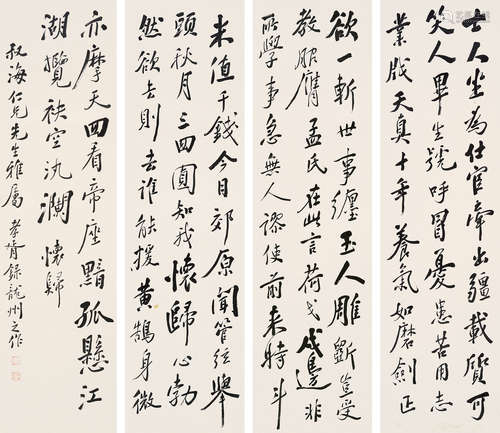 士人坐為仕宦牽出疆載質可
笑人畢生號呼冒憂患苦用志
業戕天真十年養氣如磨劍正
欲一斬世事纏玉人雕斵豈受
教服膺孟氏在此言荷戈戍邊非
所學事急無人謬使前來時斗
米值千錢今日郊原聞管弦舉
頭秋月三四圓知我懷歸心勃
然欲去則去誰能援黃鵠身微
亦摩天回看帝座黯孤懸江
湖攬袂空汍瀾 懷歸
叔海仁兄先生雅屬 孝胥錄龍州之作